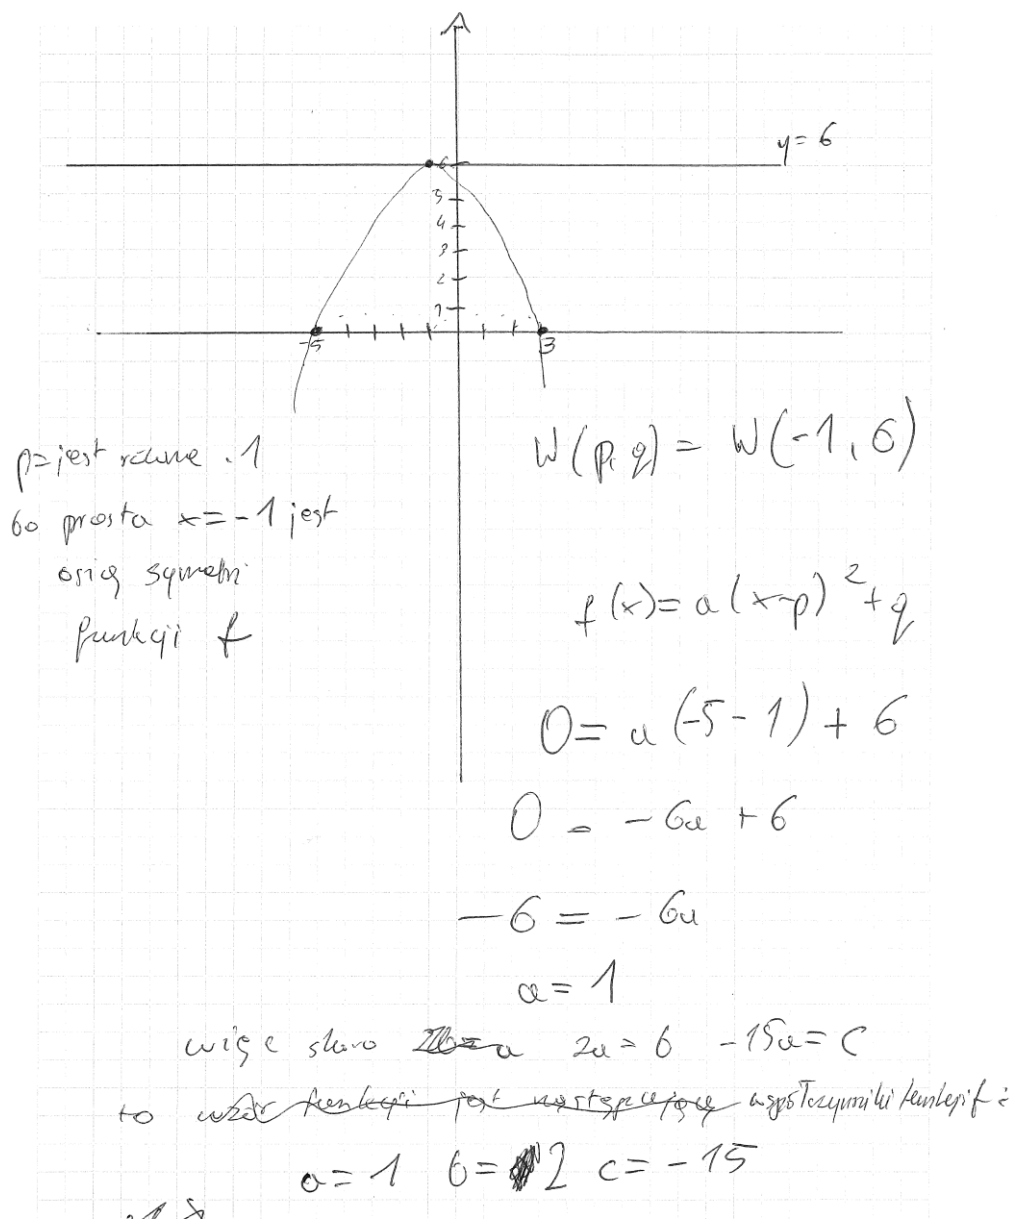 y = 6
6
5
4
3
2
1
-5
3
W(p, q) = W(-1, 6)
p = jest równe -1
bo prosta x = -1 jest
osią symetri
funkcji f
f(x) = a(x-p)² + q
0 = a(-5-1) + 6
0 = -6a + 6
-6 = -6a
a = 1
więc skoro 2a = b -15a = c
to wzór funkcji jest następujący współczynniki funkcji f :
a = 1 b = 2 c = -15